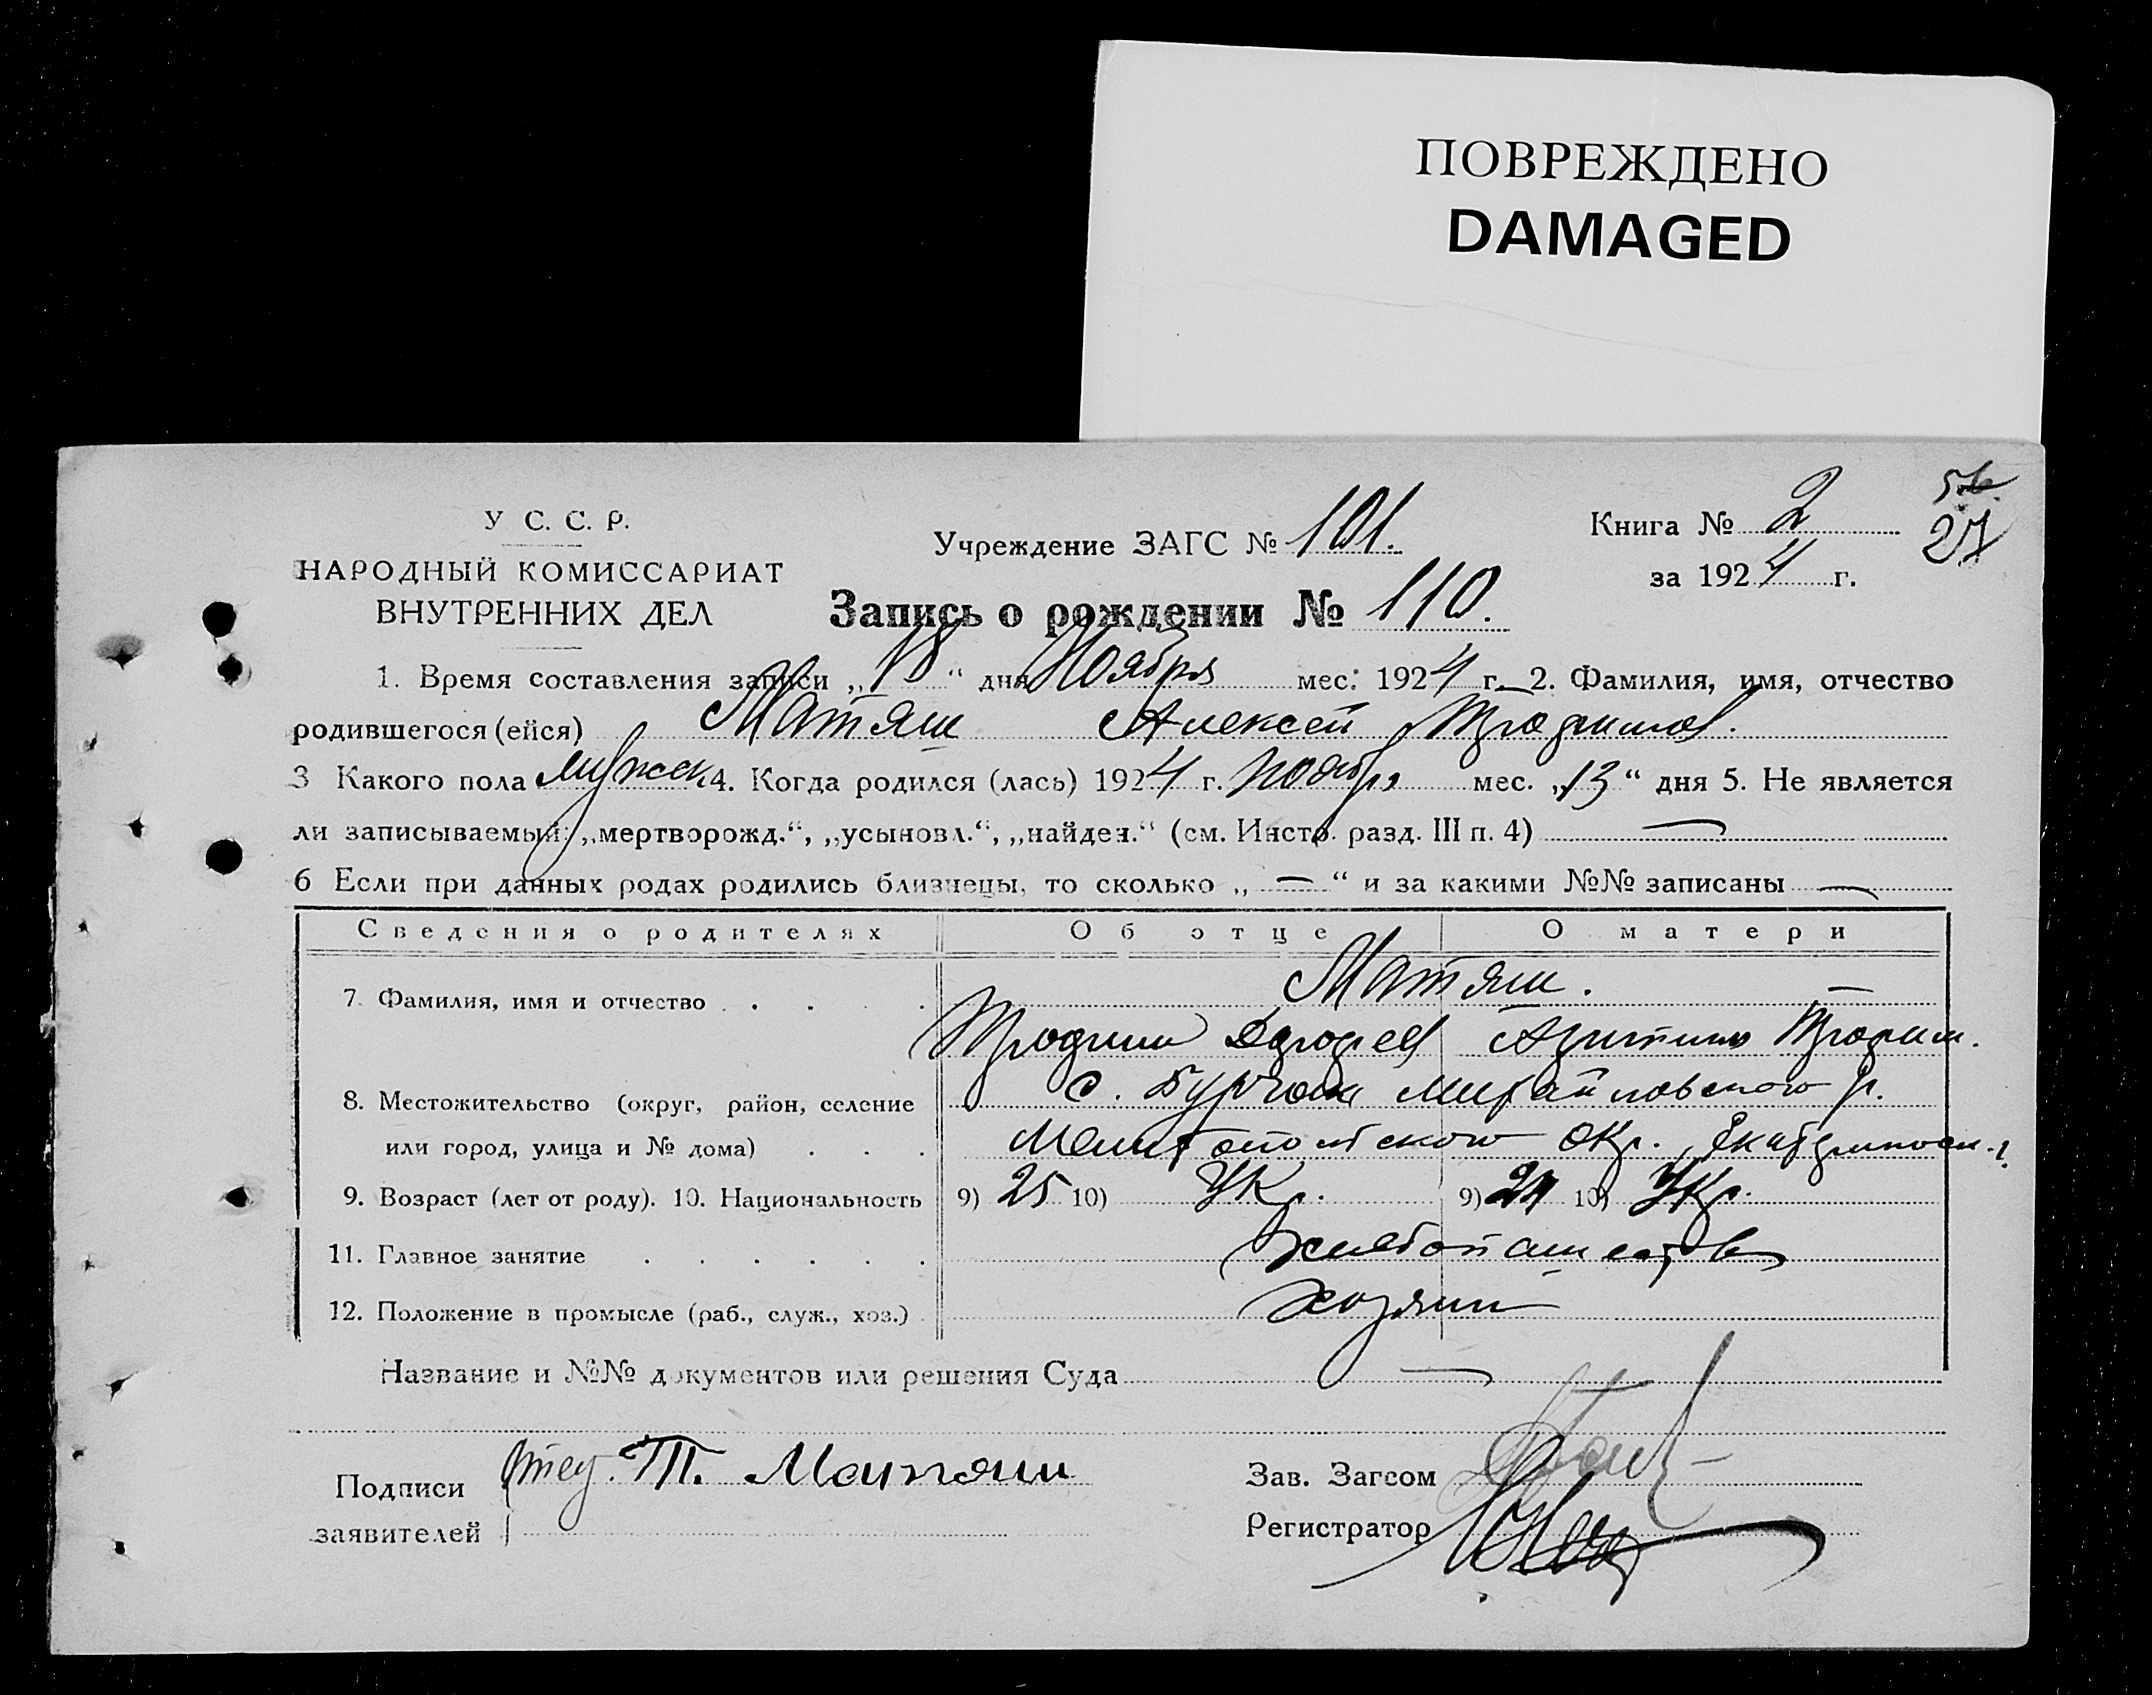 ПОВРЕЖДЕНО
DAMAGED
У С. С. Р.
НАРОДНЫЙ КОМИССАРИАТ
ВНУТРЕННИХ ДЕЛ
Учреждение ЗАГС № 101.
Книга № 2
за 1924 г.
Запись о рождении № 110.
1. Время составления записи „18“ дня Ноября мес. 1924 г. 2. Фамилия, имя, отчество
родившегося (ейся) Матяш Алексей
3 Какого пола мужск 4. Когда родился (лась) 1924 г. ноября мес. „13“ дня 5. Не является
ли записываемый: „мертворожд.“, „усыновл.“, „найден.“ (см. Инстр. разд. III п. 4) —
6 Если при данных родах родились близнецы, то сколько „ — “ и за какими №№ записаны —
Сведения о родителях Об отце О матери
7. Фамилия, имя и отчество . . . . Матяш. —
8. Местожительство (округ, район, селение с. Бурчак Михайловского р.
или город, улица и № дома) . . . Мелитопольского окр.
9. Возраст (лет от роду). 10. Национальность 9) 25 10) Укр. 9) 24 10) Укр.
11. Главное занятие . . . . . . хлебопашество
12. Положение в промысле (раб., служ., хоз.) хозяин
Название и №№ документов или решения Суда —
Подписи Отец. Т. Матяш
заявителей
Зав. Загсом
Регистратор